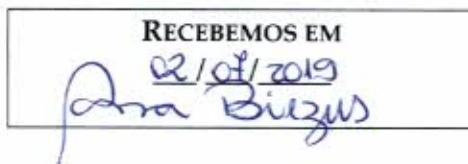 RECEBEMOS EM
02/07/2019
Ana Biezus